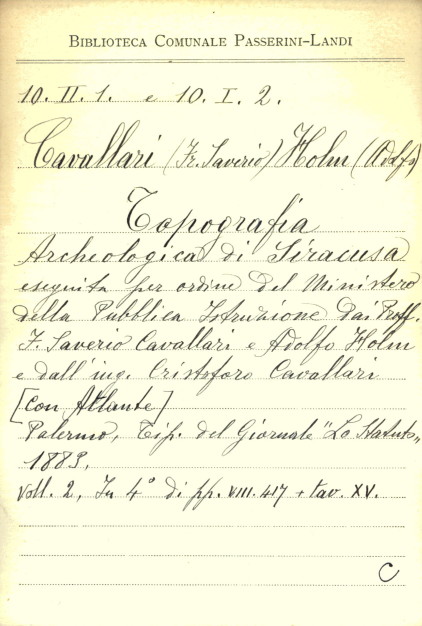 BIBLIOTECA COMUNALE PASSERINI-LANDI
10. II. 1. e 10. I. 2.
Cavallari (Fr. Saverio) Holm (Adolfo)
Topografia
Archeologica di Siracusa
eseguita per ordine del Ministero
della Pubblica Istruzione dai Proff.
F. Saverio Cavallari e Adolfo Holm
e dall'ing. Cristoforo Cavallari
[con Atlante]
Palermo, Tip. del Giornale "Lo Statuto"
1883.
Voll. 2, In 4° di pp. VIII. 417 + tav. XV.
C